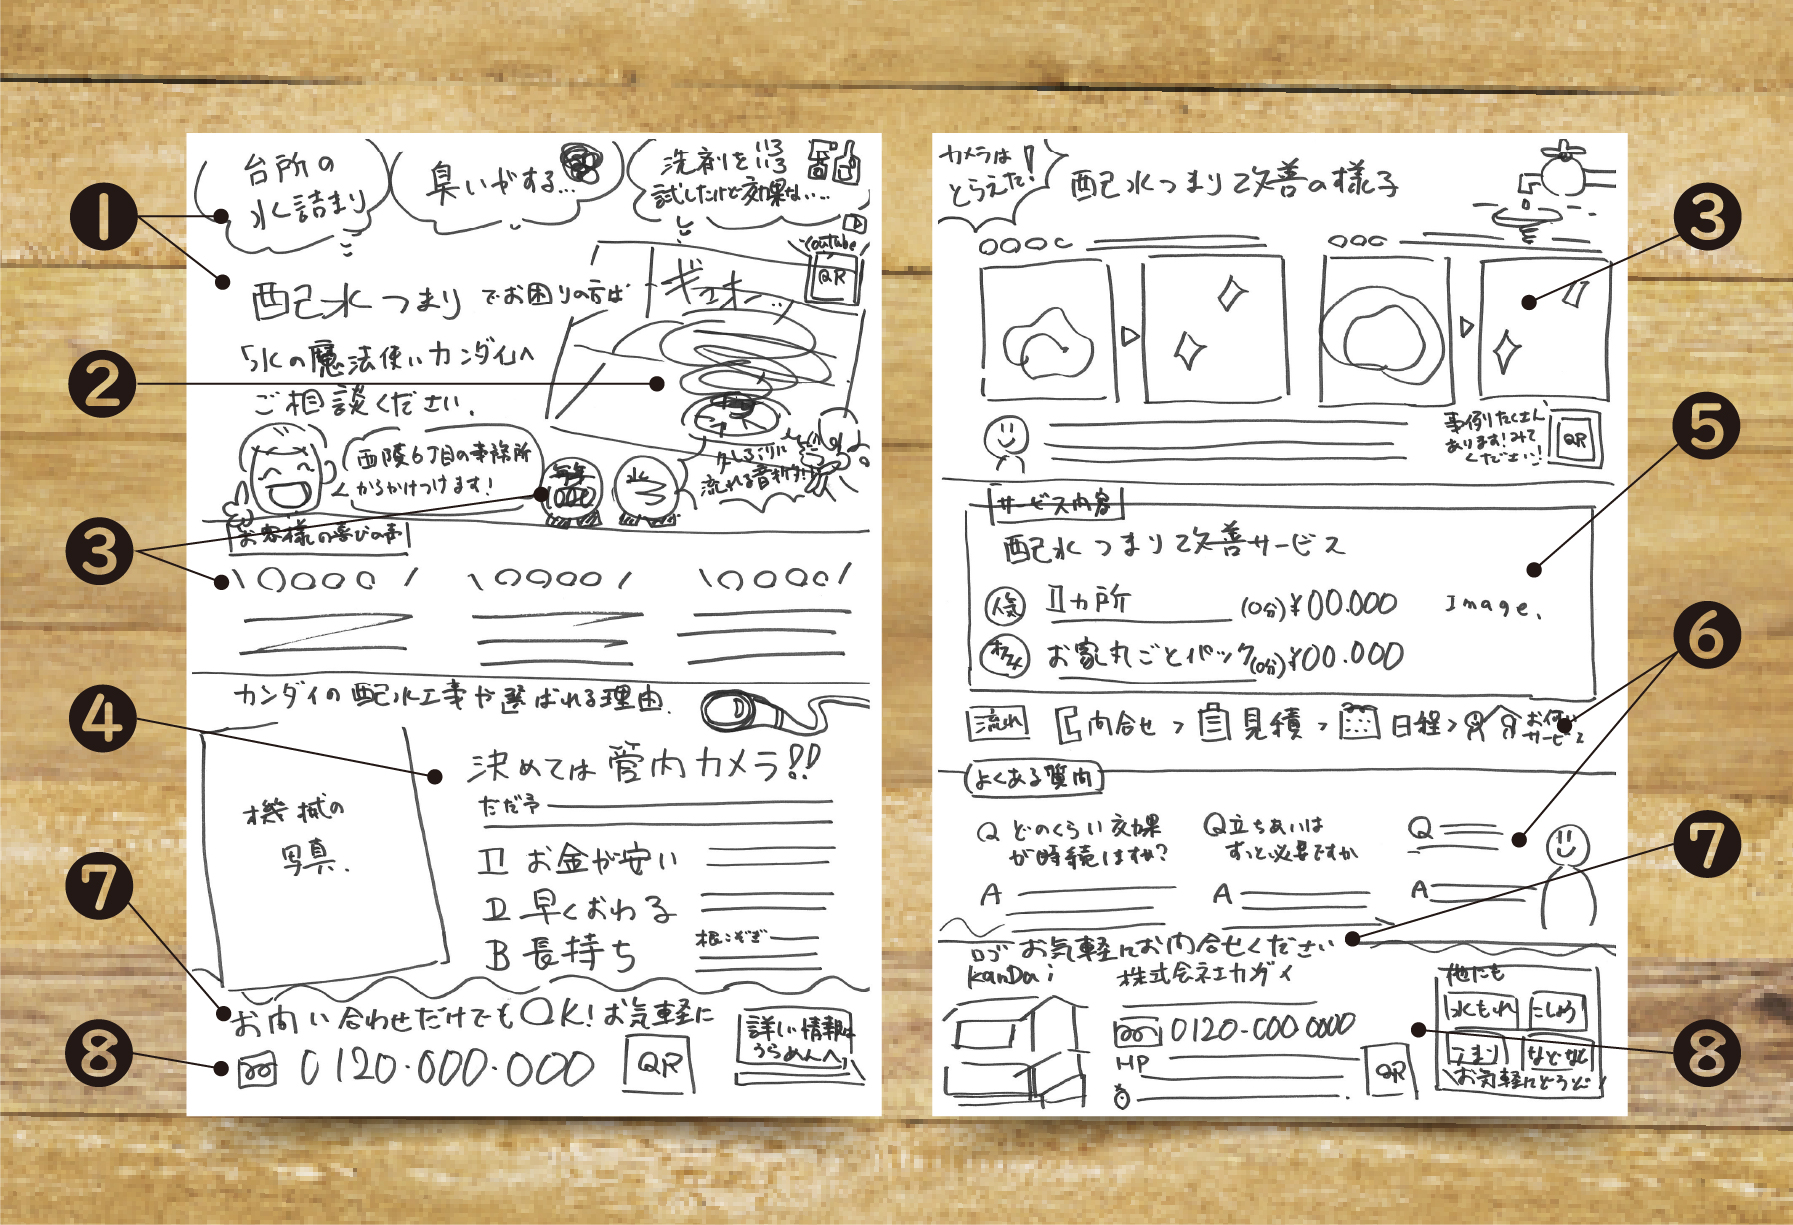 台所の
水詰まり
臭いがする...
洗剤を
いろいろ
試したけど効果な....
Youtube
QR
配水つまりでお困りの方は
「水の魔法使いカンダイ」へ
ご相談ください.
西陵6丁目の事務所
からかけつけます!
毎年
1000
流れる音
お客様の喜びの声
〇〇〇〇
〇〇〇〇
〇〇〇〇
カンダイの配水工事が選ばれる理由.
機械の
写真.
決めては管内カメラ!!
お金が安い
早くおわる
B 長持ち
根こそぎ
お問い合わせだけでもOK!お気軽に
0120-000-000
QR
詳しい情報は
うらめんへ
カメラは
とらえた!
配水つまり改善の様子
〇〇〇〇
〇〇〇
事例たくさん
あります!みて
ください!
QR
サービス内容
配水つまり改善サービス
人気
1ヵ所
(0分)¥00.000
Image.
お家丸ごとパック(0分)¥00.000
流れ
問合せ > 見積 > 日程 >
お伺い
サービス
よくある質問
Q どのくらい効果
が持続しますか?
Q 立ちあいは
ずっと必要ですか
Q
A
A
A
ロゴ
KanDai
お気軽にお問合せください
株式会社カンダイ
0120-000-0000
HP
QR
他にも
水もれ
つまり
などなど
お気軽にどうぞ!
1
2
3
4
7
8
3
5
6
7
8